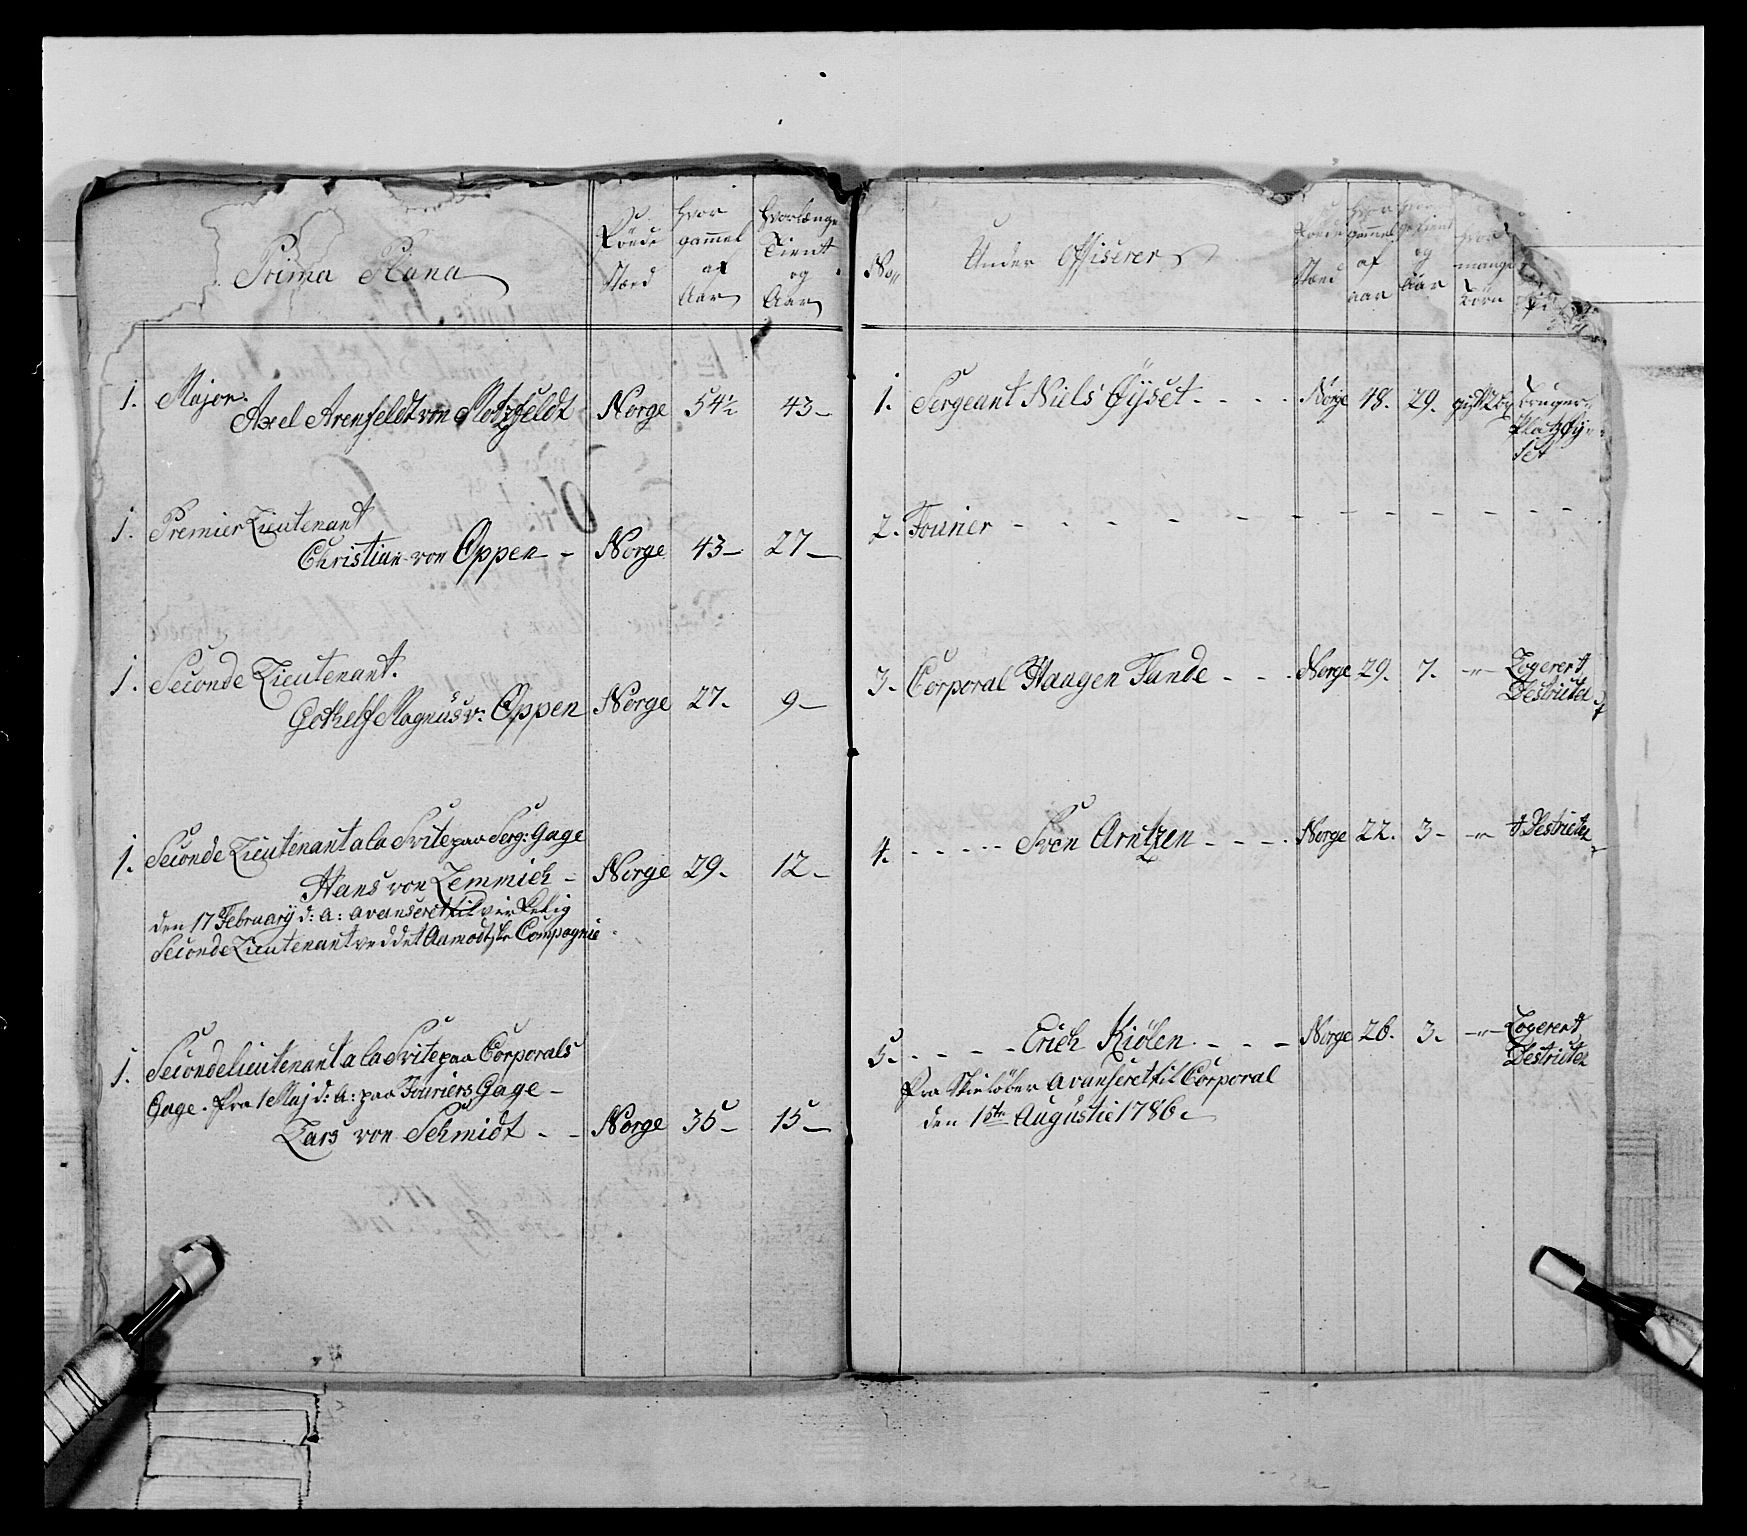 Prima Plana
Föude
Stæd
hvor
gammel
af
Aar
hvorlænge
Tient
og
Aar
1. Major.
Axel Arenfeldt von Motzfeldt Norge 54½ 43-
1. Premier Lieutenant
Christian von Oppen - Norge 43- 27-
1. Seconde Lieutenant.
Gothelf Magnus v: Oppen Norge 27- 9-
1. Seconde Lieutenant a la Svite paa Serg: Gage
Hans von Lemmich - Norge 29- 12-
den 17 February d: A: avanseret til virkelig
Seconde Lieutenant ved det Aamodtske Compagnie.
1. Secondelieutenant a la Svite paa Corporals
Gage. Fra 1 Maj d: A: paa Fouriers Gage -
Lars von Schmidt - - Norge 35- 15-
No.
Under Offiserer
Föude
Stæd
hvor
gammel
af
aar
og
Aar
hvor
mange
Börn
1. Sergeant Niels Öÿset - - - - Norge 48. 29. gift 2 Bruger
Platz Öÿ-
set
2. Fourier - - - - - - - - - - -
3. Corporal Haagen Tande - - - Norge 29. 7. -"- Logerer i
Destrictet
4. - - - - - Sven Arntzen - - - - Norge 22. 3- -"- i Destrictet
5. - - - - Erich Kiölen - - - Norge 26. 3. -"- Logerer i
Destrictet
Fra Skielöber avanseret til Corporal
den 1ste Augustii 1786.